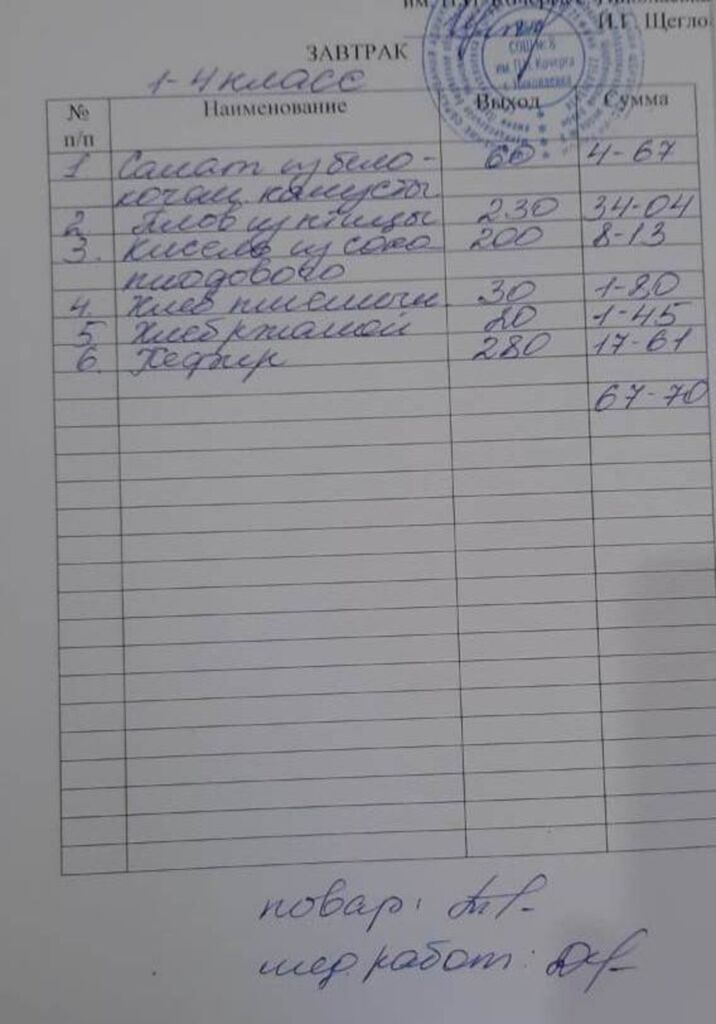 им. П.И. Кочерга с. Николаевка
И.Г. Щегло
СОШ № 8
им. П.И. Кочерга
с. Николаевка
ЗАВТРАК
1-4 класс
№ п/п Наименование Выход Сумма
1 Салат из бело- 60 4-67
кочан. капусты
2 Плов из птицы 230 34-04
3. Кисель из сока 200 8-13
плодового
4. Хлеб пшеничн. 30 1-80
5 Хлеб ржаной 20 1-45
6. Кефир 280 17-61
67-70
повар:
мед. работ: